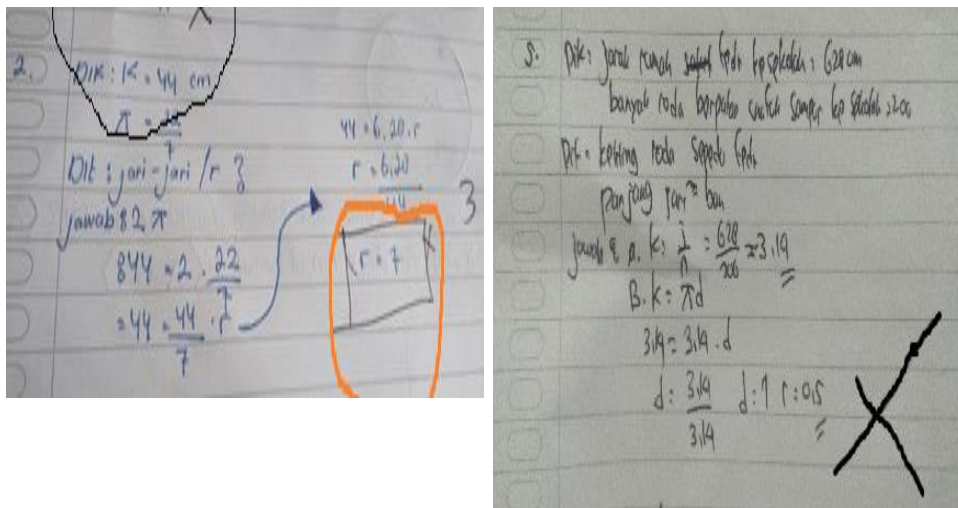 2.
Dik : K = 44 cm
π = 22/7
Dit : jari-jari / r ?
jawab : 2 π
844 = 2 . 22/7
= 44 = 44/7 . r
44 = 6,20 . r
r = 6,20/44
3
r = 7
5. Dik : jarak rumah ke sekolah : 628 cm
banyak roda berputar untuk sampai ke sekolah : 200
Dit : keliling roda
panjang jari² ban
jawab : a. K : j/n = 628/200 = 3.14
B. K : πd
3.14 = 3.14 . d
d : 3.14/3.14 d : 1 r : 0,5